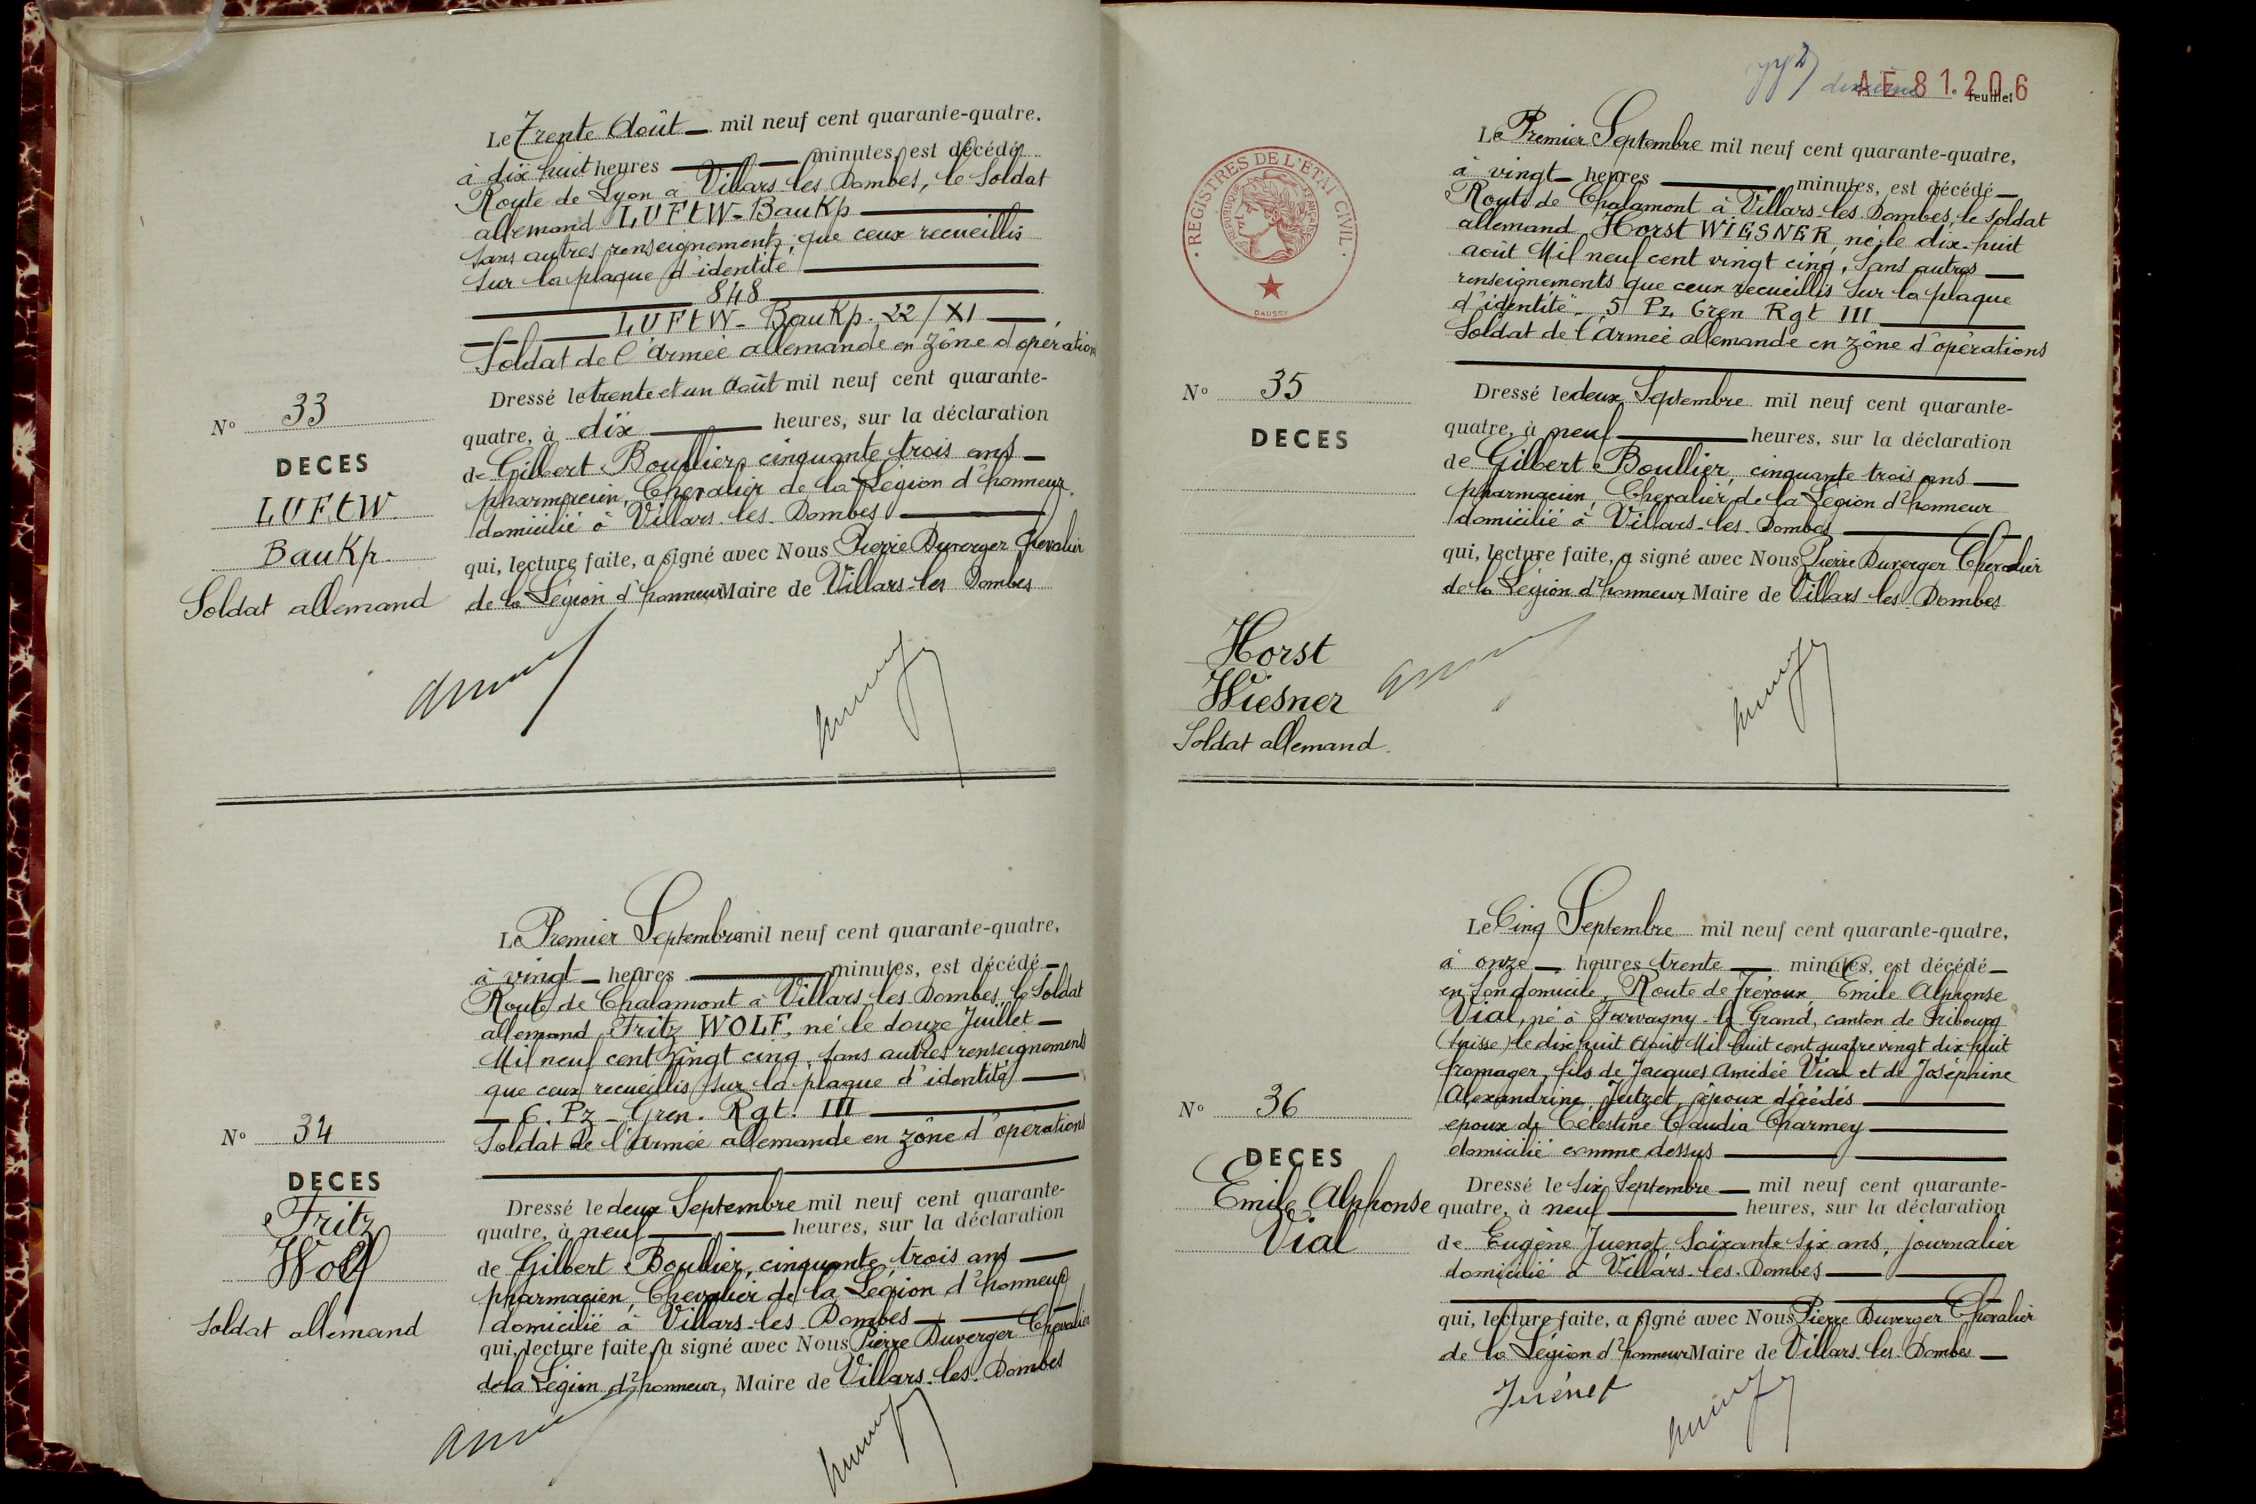 Le Trente Août mil neuf cent quarante-quatre.
à dix huit heures minutes, est décédé
Route de Lyon à Villars-les-Dombes, le Soldat
allemand LUFtW-BauKp
sans autres renseignements, que ceux recueillis
sur la plaque d'identité
848
LUFtW-BauKp. 22/XI
Soldat de l'Armée allemande en zône d'opération
Nº 33
DECES
LUFtW
BauKp.
Soldat allemand
Dressé le trente et un Août mil neuf cent quarante-
quatre, à dix heures, sur la déclaration
de Gilbert Boullier, cinquante trois ans
pharmacien, Chevalier de la Légion d'honneur,
domicilié à Villars-les-Dombes
qui, lecture faite, a signé avec Nous Pierre Duverger Chevalier
de la Légion d'honneur Maire de Villars-les-Dombes
Le Premier Septembre mil neuf cent quarante-quatre,
à vingt heures minutes, est décédé
Route de Chalamont à Villars-les-Dombes, le Soldat
allemand, Fritz WOLF, né le douze Juillet
Mil neuf cent vingt cinq, sans autres renseignements
que ceux recueillis sur la plaque d'identité
6. Pz-Gren. Rgt. III
Soldat de l'Armée allemande en zône d'opérations
Nº 34
DECES
Fritz
Wolf
Soldat allemand
Dressé le deux Septembre mil neuf cent quarante-
quatre, à neuf heures, sur la déclaration
de Gilbert Boullier, cinquante trois ans
pharmacien, Chevalier de la Légion d'honneur
domicilié à Villars-les-Dombes
qui, lecture faite, a signé avec Nous Pierre Duverger Chevalier
de la Légion d'honneur, Maire de Villars-les-Dombes
AE 81.206
feuillet
REGISTRES DE L'ÉTAT CIVIL
RÉPUBLIQUE FRANÇAISE
DAUSSY
Le Premier Septembre mil neuf cent quarante-quatre,
à vingt heures minutes, est décédé
Route de Chalamont à Villars-les-Dombes, le Soldat
allemand, Horst WIESNER, né le dix-huit
août Mil neuf cent vingt cinq, sans autres
renseignements que ceux recueillis sur la plaque
d'identité - 5 Pz Gren Rgt III
Soldat de l'Armée allemande en zône d'opérations
Nº 35
DECES
Dressé le deux Septembre mil neuf cent quarante-
quatre, à neuf heures, sur la déclaration
de Gilbert Boullier, cinquante trois ans
pharmacien, Chevalier de la Légion d'honneur
domicilié à Villars-les-Dombes
qui, lecture faite, a signé avec Nous Pierre Duverger Chevalier
de la Légion d'honneur Maire de Villars-les-Dombes
Horst
Wiesner
Soldat allemand.
Le Cinq Septembre mil neuf cent quarante-quatre,
à onze heures trente minutes, est décédé
en son domicile, Route de Trévoux, Emile Alphonse
Vial, né à Farvagny-le-Grand, canton de Fribourg
(Suisse) le dix huit Août Mil huit cent quatre vingt dix huit
fromager, fils de Jacques Amédée Vial et de Joséphine
Alexandrine Jutzet, époux décédés
époux de Célestine Claudia Charmey
domicilié comme dessus
Nº 36
DECES
Emile Alphonse
Vial
Dressé le six Septembre mil neuf cent quarante-
quatre, à neuf heures, sur la déclaration
de Eugène Juenet, soixante six ans, journalier
domicilié à Villars-les-Dombes
qui, lecture faite, a signé avec Nous Pierre Duverger Chevalier
de la Légion d'honneur Maire de Villars-les-Dombes
Juénet